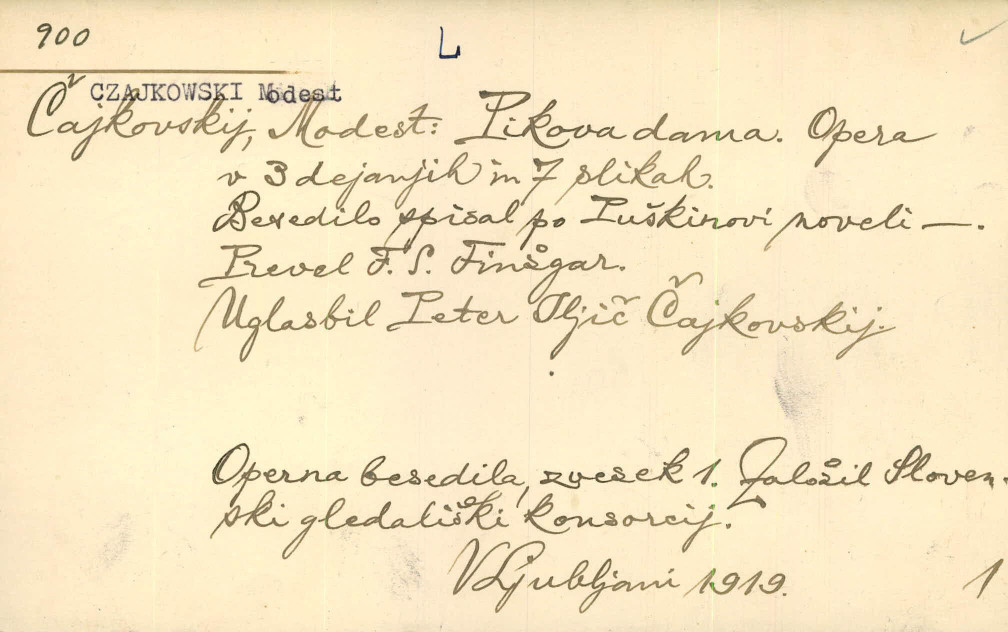 900
L
CZAJKOWSKI Modest
Čajkovskij, Modest: Pikova dama. Opera
v 3 dejanjih in 7 slikah.
Besedilo spisal po Puškinovi noveli —.
Prevel F. S. Finžgar.
Uglasbil Peter Iljič Čajkovskij.
Operna besedila, zvesek 1. Založil Sloven-
ski gledališki konsorcij.
V Ljubljani 1919.
1